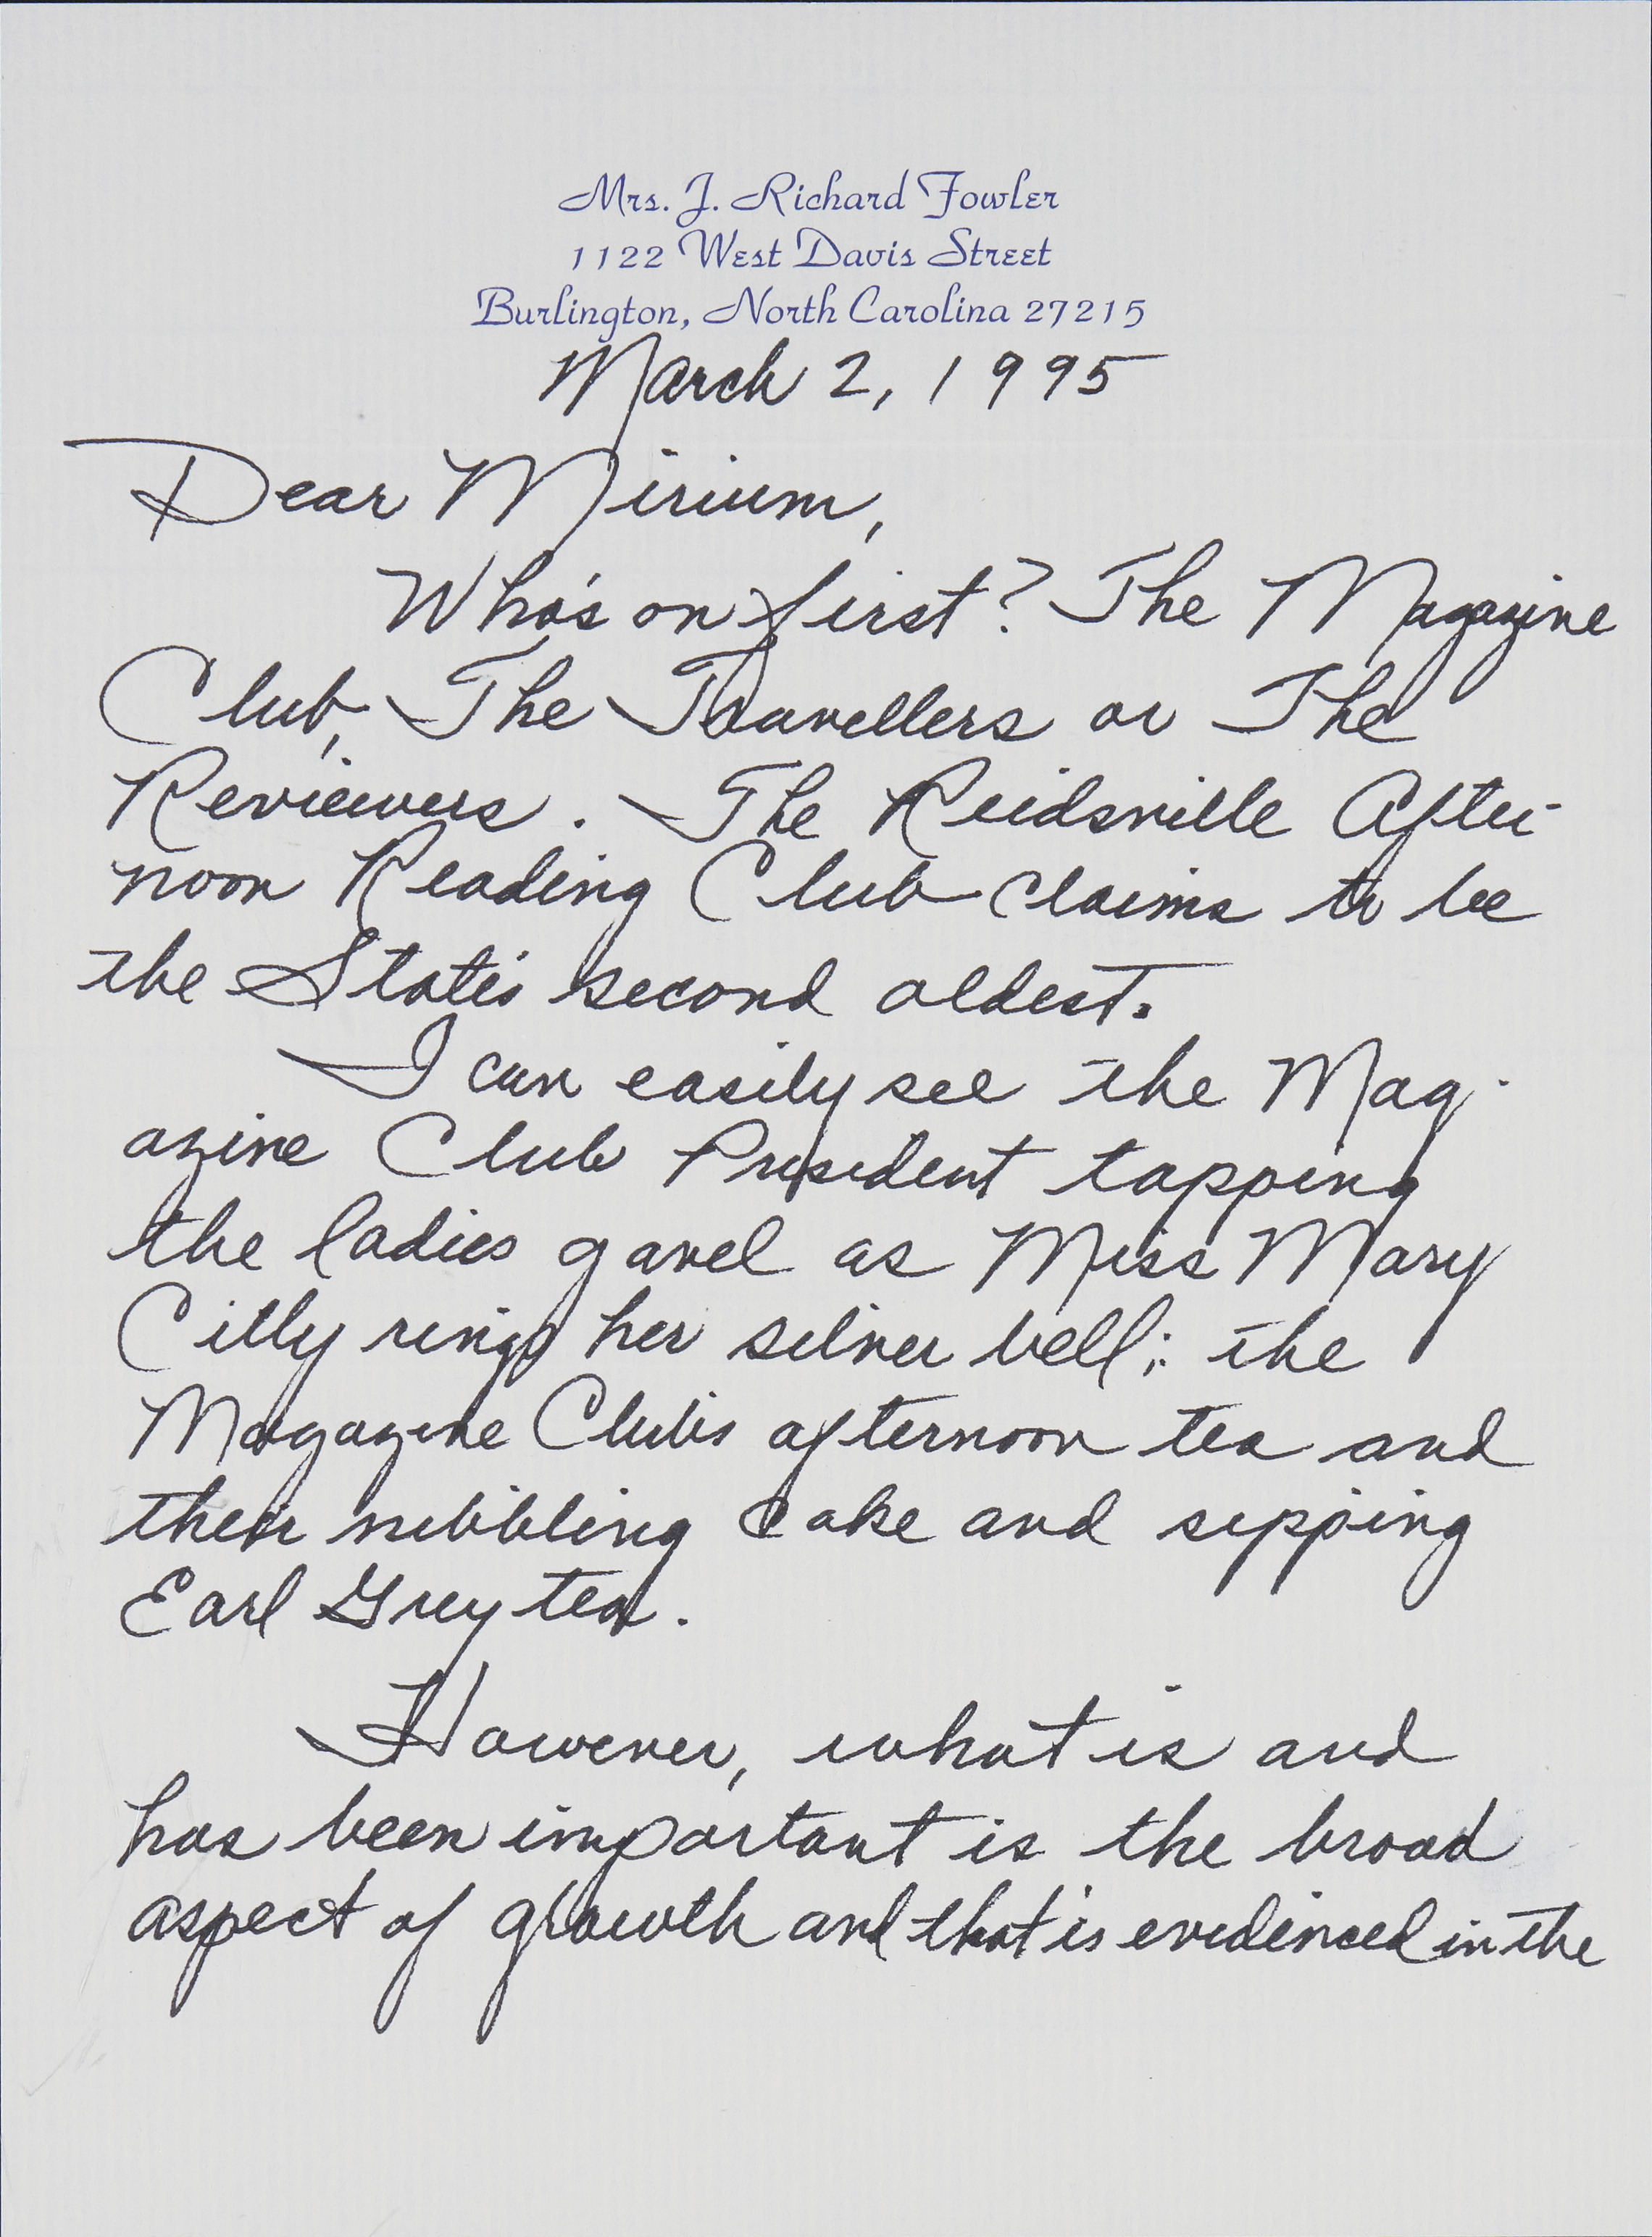 Mrs. J. Richard Fowler
1122 West Davis Street
Burlington, North Carolina 27215
March 2, 1995
Dear Mirium,
Who's on first? The Magazine
Club, The Travellers or The
Reviewers. The Reidsville After-
noon Reading Club claims to be
the State's second oldest.
I can easily see the Mag-
azine Club President tapping
the ladies gavel as Miss Mary
rings her silver bell; the
Magazine Club's afternoon tea and
their nibbling cake and sipping
Earl Grey tea.
However, what is and
has been important is the broad
aspect of growth and that is evidenced in the